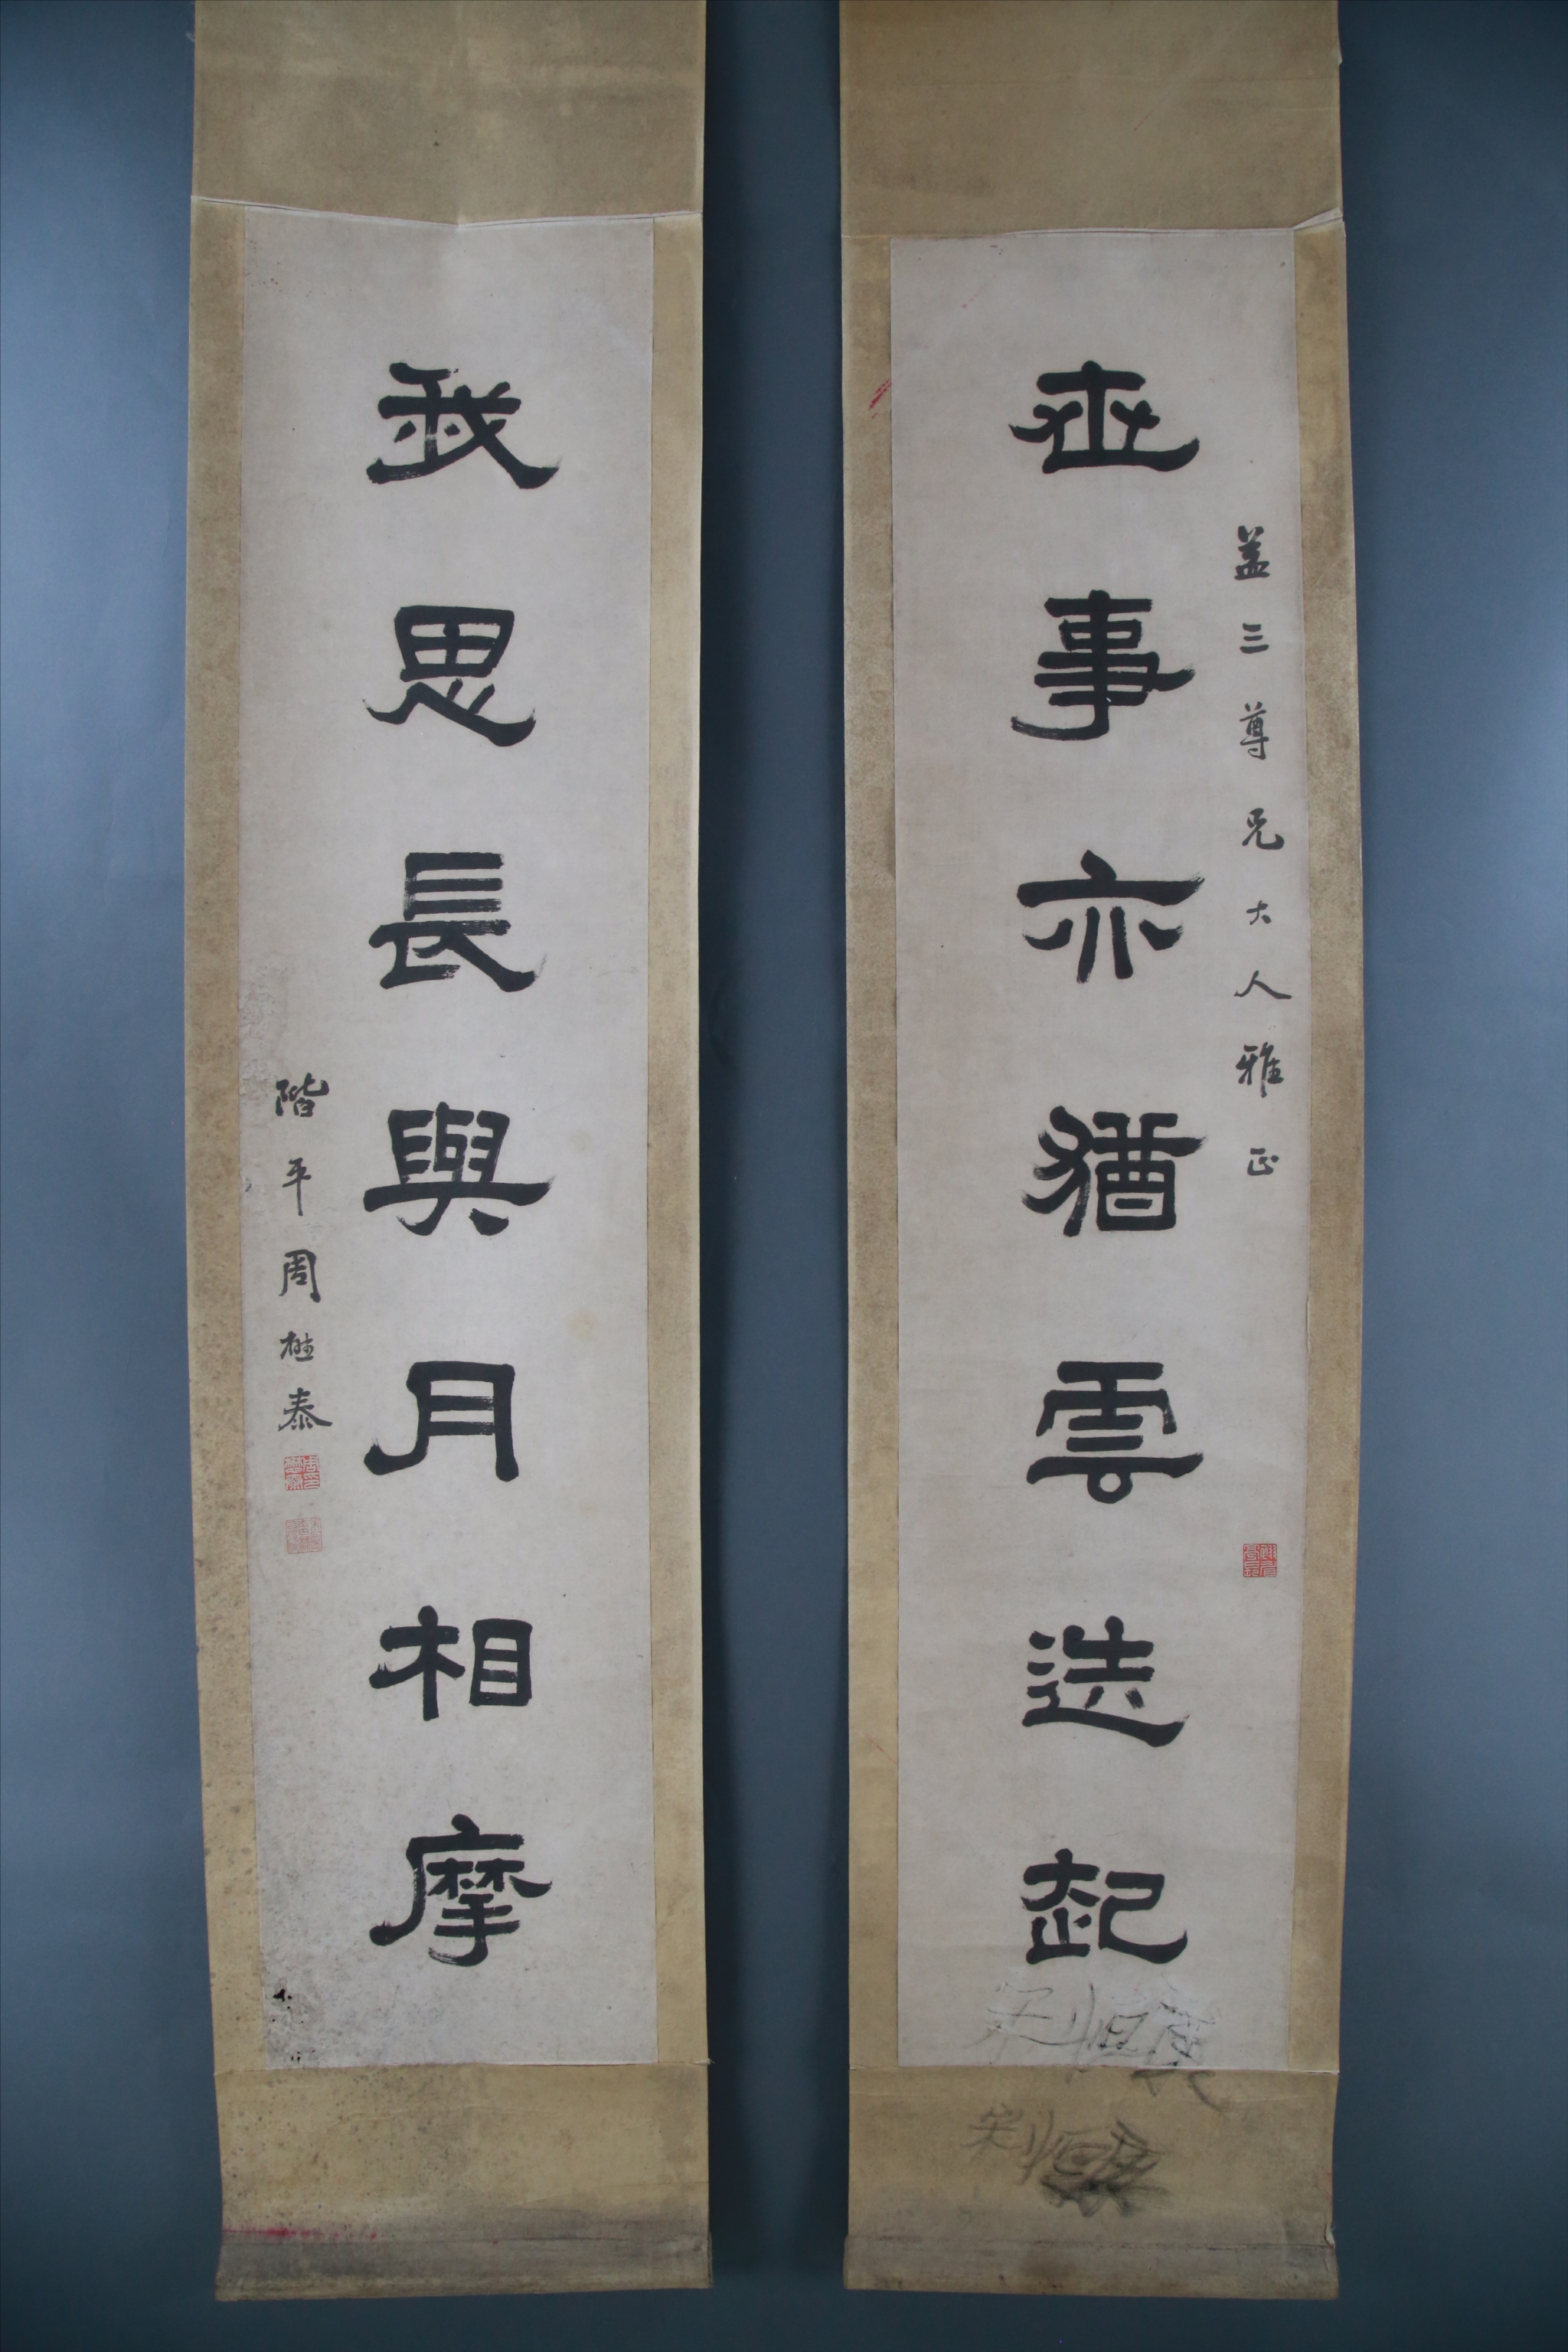 益三尊兄大人雅正
世事亦猶雲迭起
我思長與月相摩
階平周樾泰